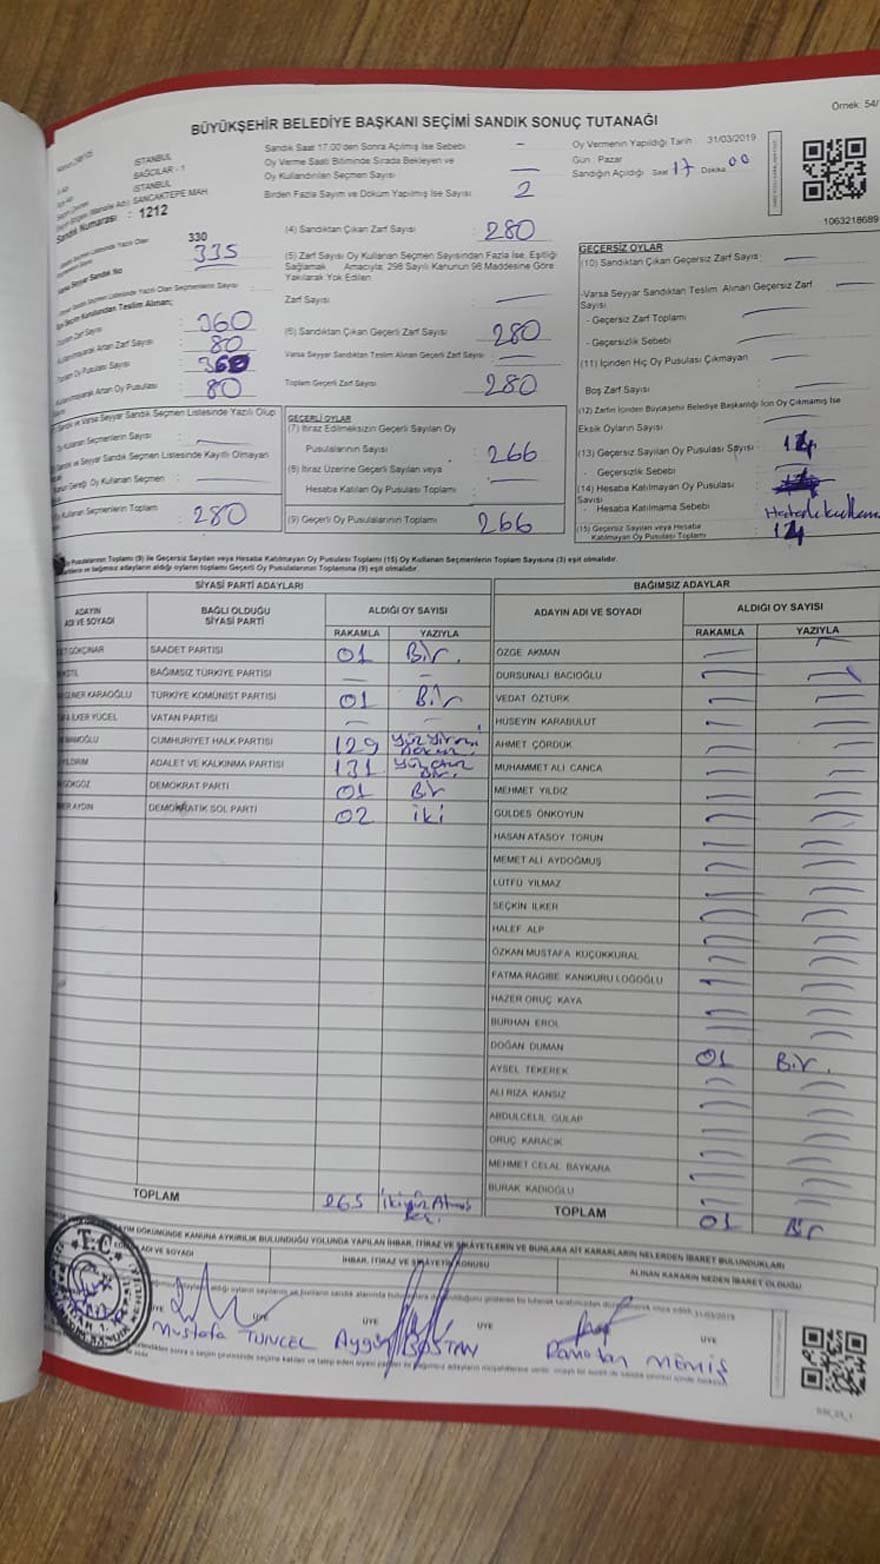 Örnek: 54/
BÜYÜKŞEHİR BELEDİYE BAŞKANI SEÇİMİ SANDIK SONUÇ TUTANAĞI
İSTANBUL
BAĞCILAR - 1
İSTANBUL
SANCAKTEPE MAH.
Sandık Numarası : 1212
Sandık Saat 17.00'den Sonra Açılmış İse Sebebi -
Oy Verme Saati Bitiminde Sırada Bekleyen ve
Oy Kullandırılan Seçmen Sayısı
Birden Fazla Sayım ve Döküm Yapılmış İse Sayısı 2
Oy Vermenin Yapıldığı Tarih : 31/03/2019
Gün : Pazar
Sandığın Açıldığı Saat 17 Dakika 00
1063218689
330
335
(4) Sandıktan Çıkan Zarf Sayısı : 280
(5) Zarf Sayısı Oy Kullanan Seçmen Sayısından Fazla İse, Eşitliği
Sağlamak Amacıyla, 298 Sayılı Kanunun 98 Maddesine Göre
Yakılarak Yok Edilen
Zarf Sayısı
Toplam Zarf Sayısı : 360
Kullanılmayarak Artan Zarf Sayısı : 80
Toplam Oy Pusulası Sayısı : 360
Kullanılmayarak Artan Oy Pusulası : 80
(6) Sandıktan Çıkan Geçerli Zarf Sayısı : 280
Varsa Seyyar Sandıktan Teslim Alınan Geçerli Zarf Sayısı :
Toplam Geçerli Zarf Sayısı : 280
GEÇERSİZ OYLAR
(10) Sandıktan Çıkan Geçersiz Zarf Sayısı :
-Varsa Seyyar Sandıktan Teslim Alınan Geçersiz Zarf
Sayısı
- Geçersiz Zarf Toplamı :
- Geçersizlik Sebebi :
(11) İçinden Hiç Oy Pusulası Çıkmayan
Boş Zarf Sayısı :
(12) Zarfın İçinden Büyükşehir Belediye Başkanlığı İçin Oy Çıkmamış İse
Eksik Oyların Sayısı :
(13) Geçersiz Sayılan Oy Pusulası Sayısı : 14
- Geçersizlik Sebebi :
(14) Hesaba Katılmayan Oy Pusulası
Sayısı
- Hesaba Katılmama Sebebi :
(15) Geçersiz Sayılan veya Hesaba
Katılmayan Oy Pusulası Toplamı : 14
Sandık ve Varsa Seyyar Sandık Seçmen Listesinde Yazılı Olup
Oy Kullanan Seçmenlerin Sayısı :
Sandık ve Seyyar Sandık Seçmen Listesinde Kayıtlı Olmayan
Kanun Gereği Oy Kullanan Seçmen :
Oy Kullanan Seçmenlerin Toplamı : 280
GEÇERLİ OYLAR
(7) İtiraz Edilmeksizin Geçerli Sayılan Oy
Pusulalarının Sayısı : 266
(8) İtiraz Üzerine Geçerli Sayılan veya
Hesaba Katılan Oy Pusulası Toplamı :
(9) Geçerli Oy Pusulalarının Toplamı : 266
Pusulalarının Toplamı (9) ile Geçersiz Sayılan veya Hesaba Katılmayan Oy Pusulası Toplamı (15) Oy Kullanan Seçmenlerin Toplam Sayısına (3) eşit olmalıdır.
Partilerin ve bağımsız adayların aldığı oyların toplamı Geçerli Oy Pusulalarının Toplamına (9) eşit olmalıdır.
SİYASİ PARTİ ADAYLARI
ADAYIN
ADI VE SOYADI
BAĞLI OLDUĞU
SİYASİ PARTİ
ALDIĞI OY SAYISI
RAKAMLA YAZIYLA
GÖKÇINAR SAADET PARTİSİ 01 Bir.
BAĞIMSIZ TÜRKİYE PARTİSİ - -
KARAOĞLU TÜRKİYE KOMÜNİST PARTİSİ 01 Bir
İLKER YÜCEL VATAN PARTİSİ - -
İMAMOĞLU CUMHURİYET HALK PARTİSİ 129 Yüz Yirmi
dokuz
YILDIRIM ADALET VE KALKINMA PARTİSİ 131 Yüz Otuz
Bir.
GÖKGÖZ DEMOKRAT PARTİ 01 Bir
AYDIN DEMOKRATİK SOL PARTİ 02 iki
TOPLAM 265 İkiyüz Atmış
Beş.
BAĞIMSIZ ADAYLAR
ADAYIN ADI VE SOYADI
ALDIĞI OY SAYISI
RAKAMLA YAZIYLA
ÖZGE AKMAN
DURSUNALİ BACIOĞLU
VEDAT ÖZTÜRK
HÜSEYİN KARABULUT
AHMET ÇÖRDÜK
MUHAMMET ALİ CANCA
MEHMET YILDIZ
GÜLDES ÖNKOYUN
HASAN ATASOY TORUN
MEMET ALİ AYDOĞMUŞ
LÜTFÜ YILMAZ
SEÇKİN İLKER
HALEF ALP
ÖZKAN MUSTAFA KÜÇÜKKURAL
FATMA RAGİBE KANIKURU LOĞOĞLU
HAZER ORUÇ KAYA
BURHAN EROL
DOĞAN DUMAN 01 Bir.
AYSEL TEKEREK
ALİ RIZA KANSIZ
ABDULCELİL GÜLAP
ORUÇ KARACIK
MEHMET CELAL BAYKARA
BURAK KADIOĞLU
TOPLAM 01 Bir
SAYIM DÖKÜMÜNDE KANUNA AYKIRILIK BULUNDUĞU YOLUNDA YAPILAN İHBAR, İTİRAZ VE ŞİKAYETLERİN VE BUNLARA AİT KARARLARIN NELERDEN İBARET BULUNDUKLARI
ADI VE SOYADI
İHBAR, İTİRAZ VE ŞİKAYETİN KONUSU
ALINAN KARARIN NEDEN İBARET OLDUĞU
T.C.
31/03/2019
ÜYE ÜYE ÜYE ÜYE ÜYE
Mustafa TUNCEL Aygün BOSTAN Ramazan MEMİŞ